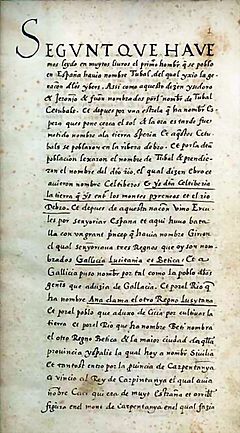 SEGUNT QUE HAVE
mos leydo en muytos livros el primo hombre q̃ se poblo
en España havia nombre Tubal, del qual yxio la ge
racion dlos ybers. Assi como aquesto dizen ysidoro
e Jeronio, & fuon nombrados por el nombre de Tubal
Cetubale. Ce depues por una estrela q̃ ha nombre
pero ques pone cerca el sol & la ora es tarde fue
metido nombre ala tierra speria. Ce aq̃stos Cetu
bale se poblaron en la ribera debro. Ce por la dita
poblacion lexaron el nombre de Tubal & prendie
ron el nombre del rio, el qual dizen Ebro et
avieron nombre Celtiberos & ys din Celtiberia
la tierra q̃ ys entre los montes pyreneos et el rio
Debro. Ce depues de aquesto vino Ercu
les por senyoriar España et aqui huvo bata
lla con un grant princep q̃ havia nombre Girion
el qual senyoriava tres Regnos que oy son nom
brados Gallicia Lusitania et Betica. Ce a
Gallicia puso nombre por tal como la poblo dlas
gents que aduxia de Gallacia. Ce por el Rio q̃
ha nombre Ana clama el otro Regno Lusytana
Ce por el poblo que aduxo de Cicia por cultivar la
tierra. et por el Rio que ha nombre Beti nombra
el otro Regno Betica & la maior ciudad de aq̃lla
provincia yspalis la qual hoy a nombre Sivilia
Ce entrost entro por la provincia de Carpentanya
e vincio al Rey de Carpintanya el qual avia
nombre Caco que era de muy estrana et orrible
figura en el mont de Carpentanya en el qual fazia